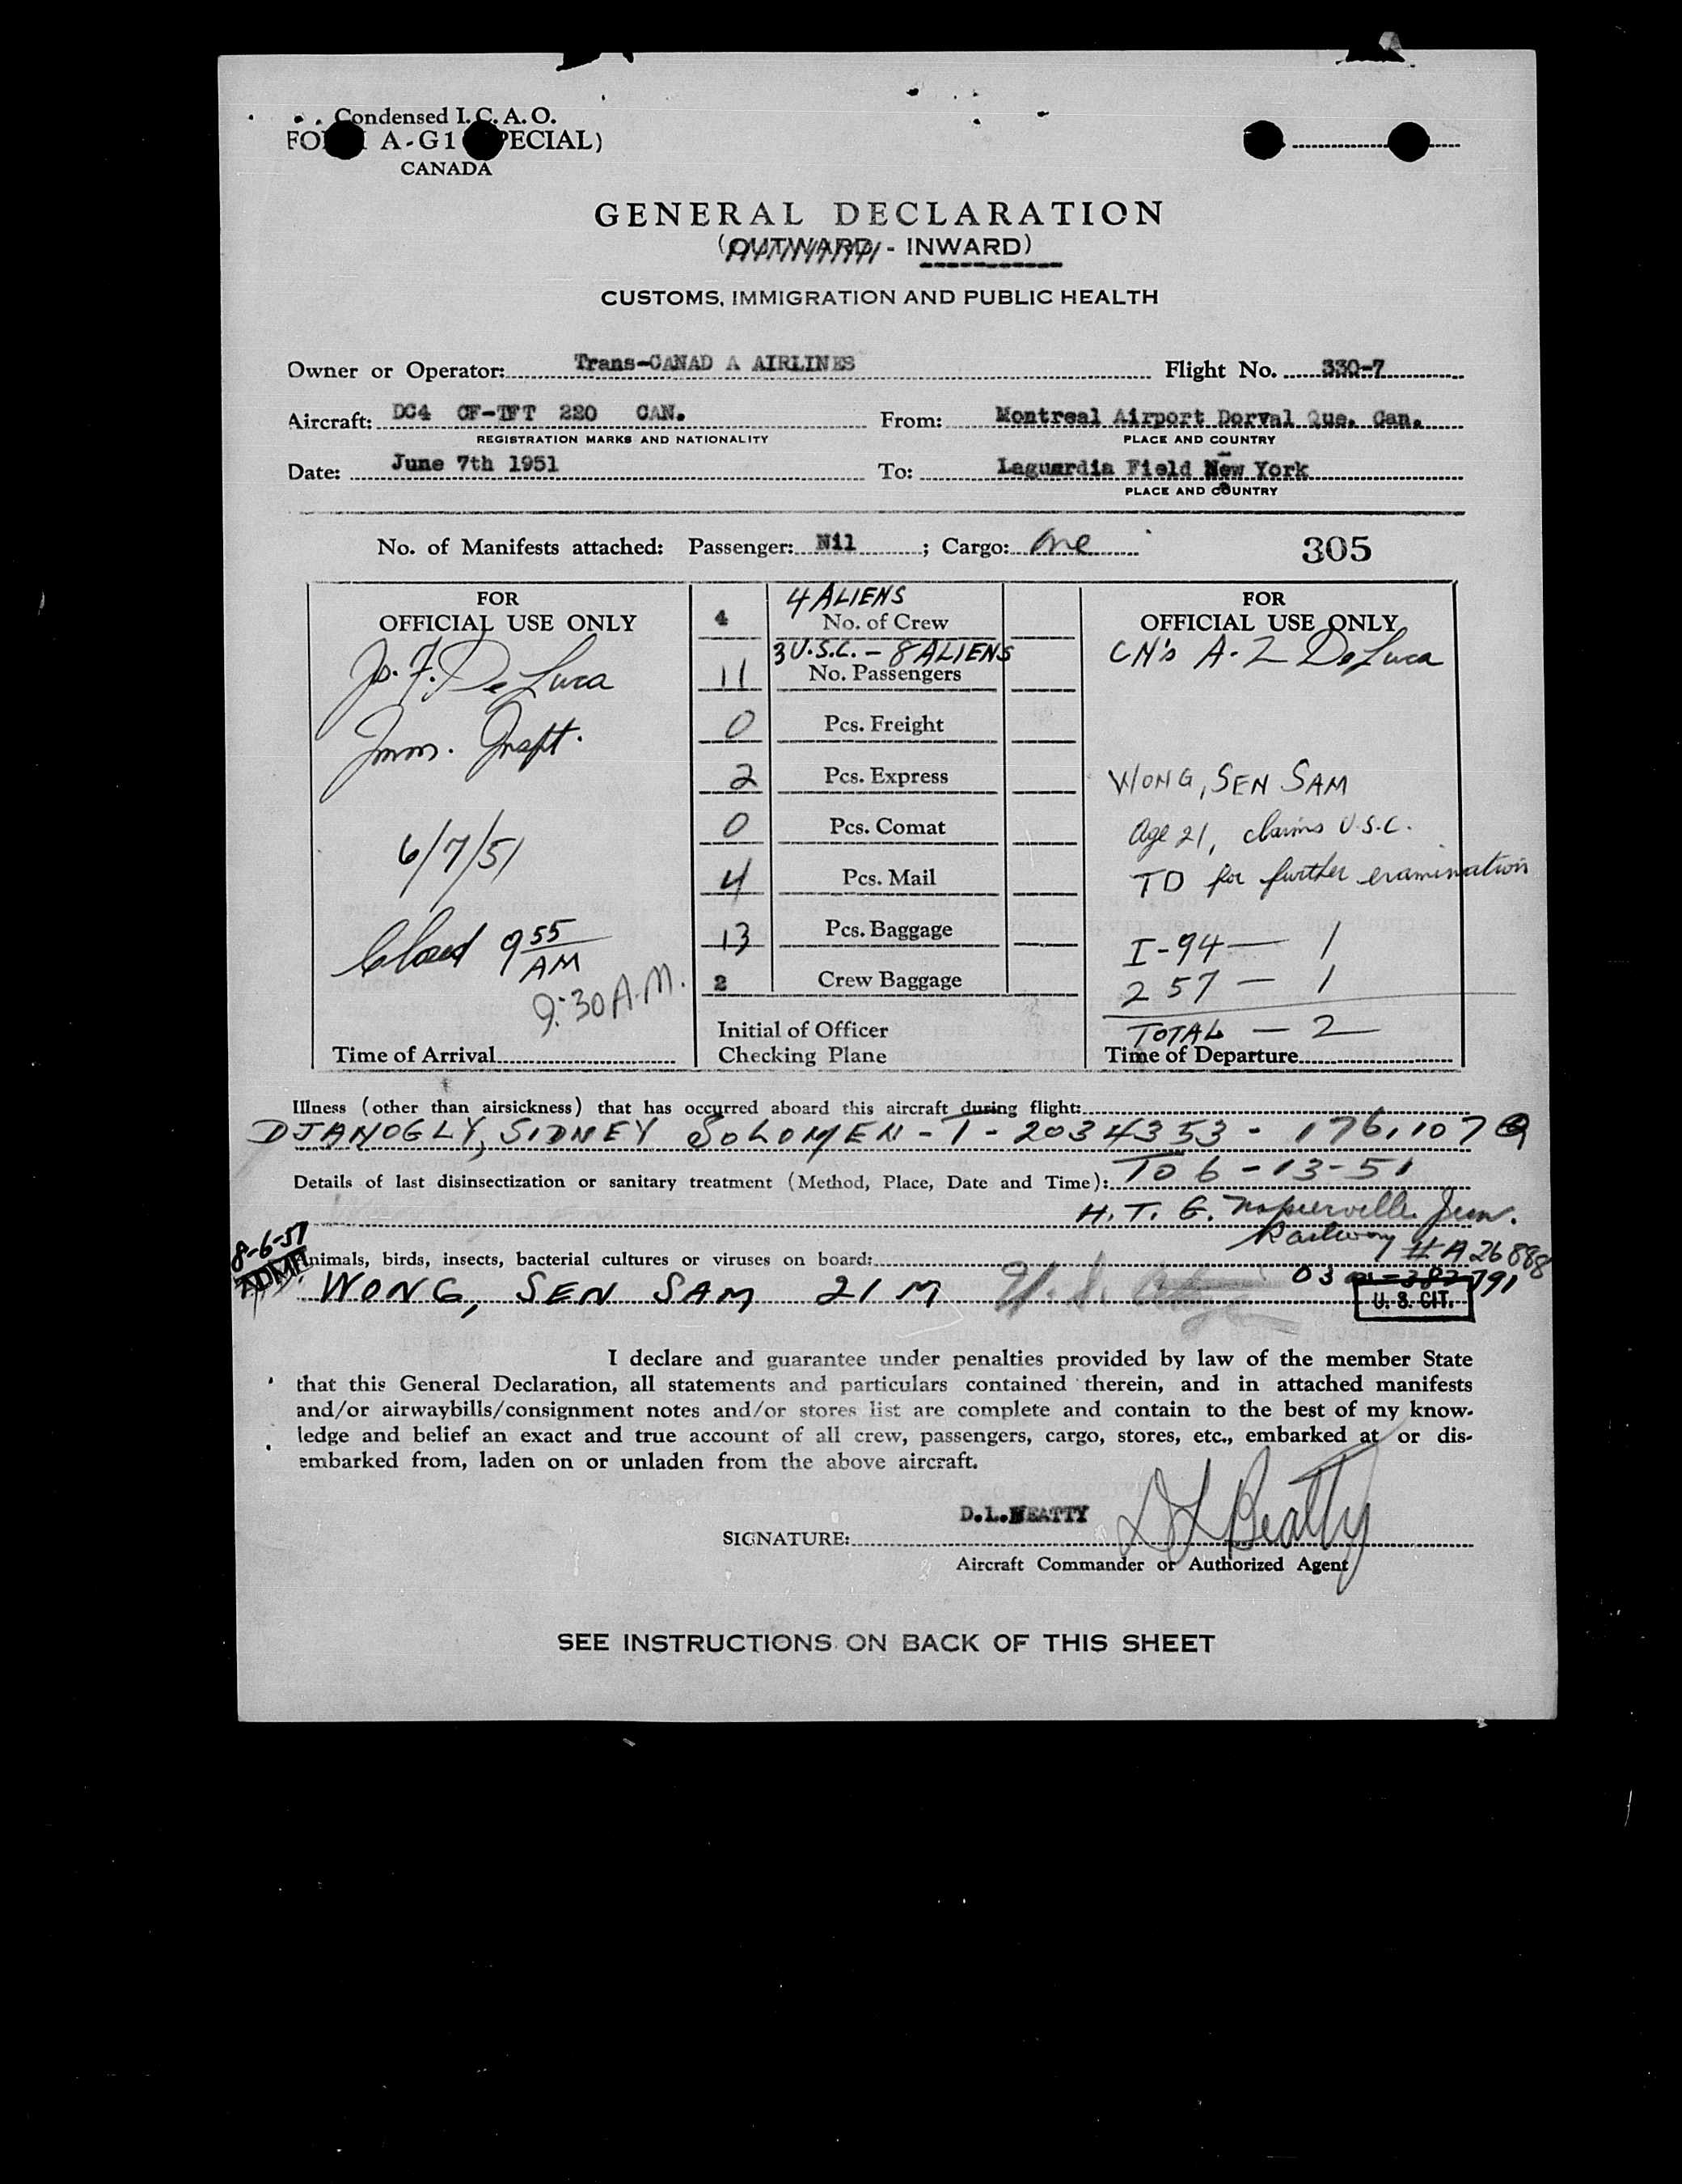 Condensed I.C.A.O.
A-G1
CANADA
GENERAL DECLARATION
(OUTWARD - INWARD)
CUSTOMS, IMMIGRATION AND PUBLIC HEALTH
Owner or Operator: Trans-CANAD A AIRLINES Flight No. 330-7
Aircraft: DC4 CF-TFT 220 CAN. From: Montreal Airport Dorval Que. Can.
REGISTRATION MARKS AND NATIONALITY PLACE AND COUNTRY
Date: June 7th 1951 To: Laguardia Field New York
PLACE AND COUNTRY
No. of Manifests attached: Passenger: Nil ; Cargo: One 305
FOR
OFFICIAL USE ONLY
Jo. F. De Luca
Imm. Inspt.
6/7/51
Closed 9 55 AM
9:30 A.M.
Time of Arrival
4 ALIENS
4 No. of Crew
3 U.S.C. - 8 ALIENS
11 No. Passengers
0 Pcs. Freight
2 Pcs. Express
0 Pcs. Comat
4 Pcs. Mail
13 Pcs. Baggage
2 Crew Baggage
Initial of Officer
Checking Plane
FOR
OFFICIAL USE ONLY
CN's A-Z DeLuca
WONG, SEN SAM
Age 21, claims U.S.C.
TD for further examination
I-94 — 1
257 — 1
TOTAL — 2
Time of Departure
Illness (other than airsickness) that has occurred aboard this aircraft during flight:
DJANOGLY, SIDNEY SOLOMEN - T - 2034353 - 176,107
Details of last disinsectization or sanitary treatment (Method, Place, Date and Time): To 6-13-51
H. T. G. Napierville Jun.
Railway # A26888
8-6-51
ADMIT
Animals, birds, insects, bacterial cultures or viruses on board:
WONG, SEN SAM 21 M U.S. 03 791
U. S. CIT.
I declare and guarantee under penalties provided by law of the member State
that this General Declaration, all statements and particulars contained therein, and in attached manifests
and/or airwaybills/consignment notes and/or stores list are complete and contain to the best of my know-
ledge and belief an exact and true account of all crew, passengers, cargo, stores, etc., embarked at or dis-
embarked from, laden on or unladen from the above aircraft.
D.L.BEATTY
SIGNATURE: D L Beatty
Aircraft Commander or Authorized Agent
SEE INSTRUCTIONS ON BACK OF THIS SHEET